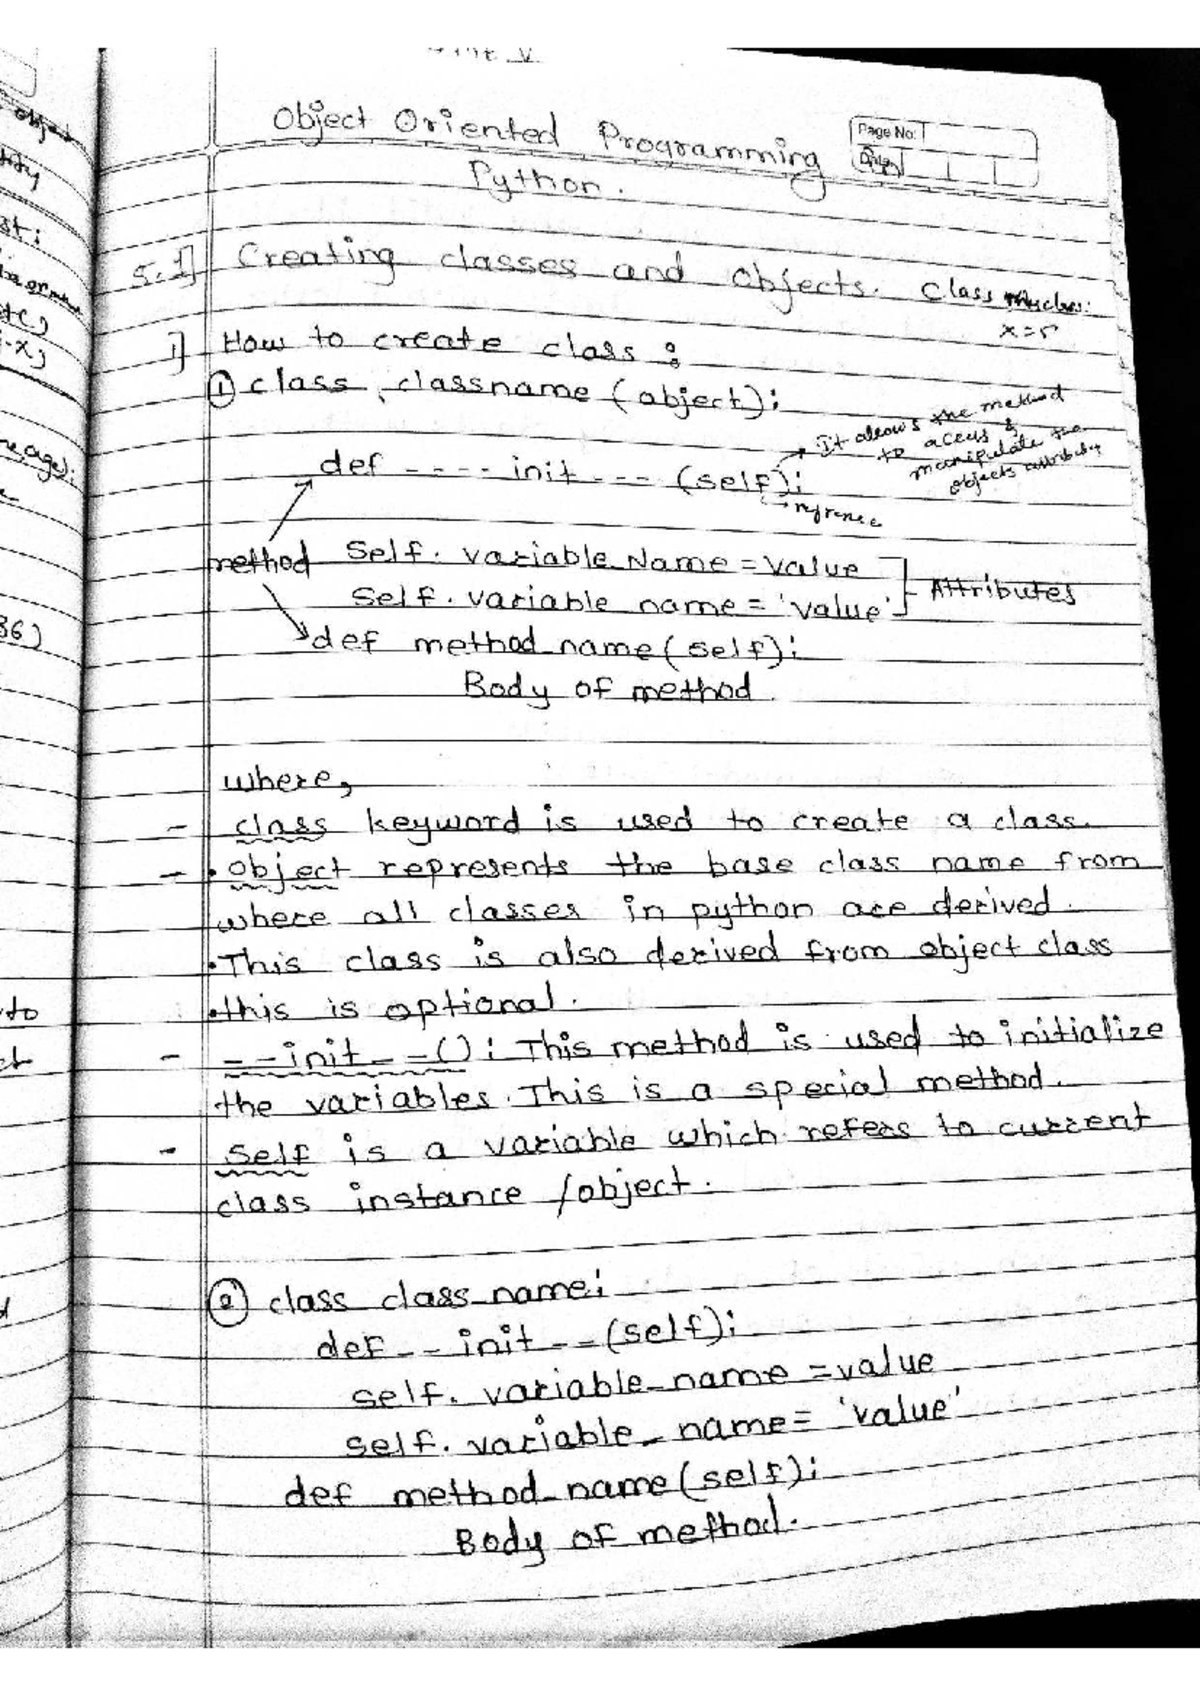 Unit V
Object Oriented Programming
Python.
Page No:
5.1] Creating classes and objects. Class Myclass:
x=5
1] How to create class :
① class classname (object):
→ It allows the method
to access &
manipulate the
objects attributes
def ----init---- (self):
→ refrence
method Self. variable_Name = value
Self. variable_name = 'value' ] Attributes
def method_name(self):
Body of method
where,
- class keyword is used to create a class.
- • object represents the base class name from
where all classes in python are derived.
• This class is also derived from object class
• this is optional.
- --init--(): This method is used to initialize
the variables. This is a special method.
- Self is a variable which refers to current
class instance /object.
② class class_name:
def --init--(self):
self. variable_name = value
self. variable_name = 'value'
def method_name(self):
Body of method.